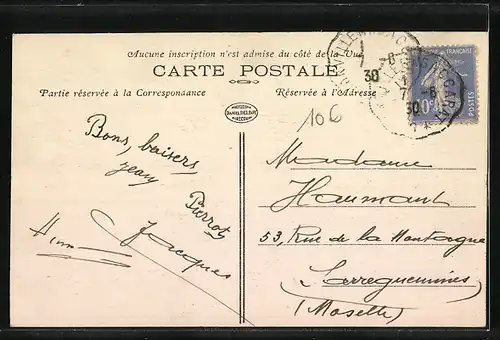 Aucune inscription n'est admise du côté de la Vue
CARTE POSTALE
Partie réservée à la Correspondance
Réservée à l'Adresse
106
Bons baisers
jean
Pierrot
Jacques
30
7-6
30
POSTES
Madame
Haumant
53, Rue de la Montagne
Sarreguemines
(Moselle)